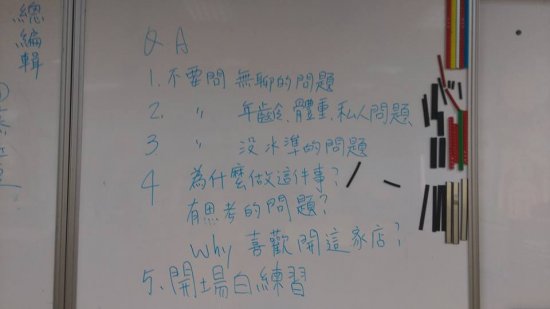 總編輯
Q A
1. 不要問 無聊的問題
2. 〃 年齡、體重、私人問題
3 〃 沒水準的問題
4 為什麼做這件事?
有思考的問題?
Why 喜歡開這家店?
5. 開場白練習